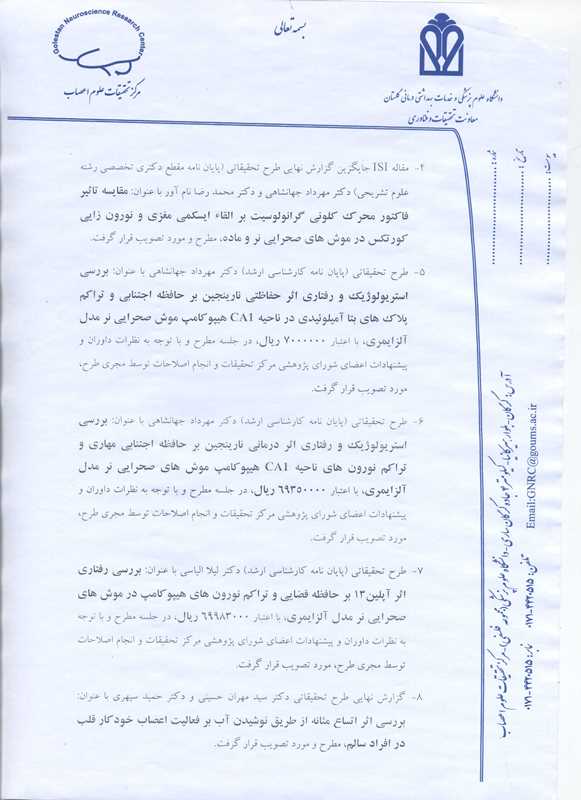 بسمه تعالی
Golestan Neuroscience Research Center
مرکز تحقیقات علوم اعصاب
دانشگاه علوم پزشکی و خدمات بهداشتی درمانی گلستان
معاونت تحقیقات و فناوری
شماره:
تاریخ:
پیوست:
۴- مقاله ISI جایگزین گزارش نهایی طرح تحقیقاتی (پایان نامه مقطع دکتری تخصصی رشته
علوم تشریحی) دکتر مهرداد جهانشاهی و دکتر محمد رضا نام آور با عنوان: مقایسه تاثیر
فاکتور محرک کلونی گرانولوسیت بر القاء ایسکمی مغزی و نورون زایی
کورتکس در موش های صحرایی نر و ماده، مطرح و مورد تصویب قرار گرفت.
۵- طرح تحقیقاتی (پایان نامه کارشناسی ارشد) دکتر مهرداد جهانشاهی با عنوان: بررسی
استریولوژیک و رفتاری اثر حفاظتی نارینجین بر حافظه اجتنابی و تراکم
پلاک های بتا آمیلوئیدی در ناحیه CA1 هیپوکامپ موش صحرایی نر مدل
آلزایمری، با اعتبار ۷۰۰۰۰۰۰۰ ریال، در جلسه مطرح و با توجه به نظرات داوران و
پیشنهادات اعضای شورای پژوهشی مرکز تحقیقات و انجام اصلاحات توسط مجری طرح،
مورد تصویب قرار گرفت.
۶- طرح تحقیقاتی (پایان نامه کارشناسی ارشد) دکتر مهرداد جهانشاهی با عنوان: بررسی
استریولوژیک و رفتاری اثر درمانی نارینجین بر حافظه اجتنابی مهاری و
تراکم نورون های ناحیه CA1 هیپوکامپ موش های صحرایی نر مدل
آلزایمری، با اعتبار ۶۹۳۵۰۰۰۰ ریال، در جلسه مطرح و با توجه به نظرات داوران و
پیشنهادات اعضای شورای پژوهشی مرکز تحقیقات و انجام اصلاحات توسط مجری طرح،
مورد تصویب قرار گرفت.
۷- طرح تحقیقاتی (پایان نامه کارشناسی ارشد) دکتر لیلا الیاسی با عنوان: بررسی رفتاری
اثر آپلین۱۳ بر حافظه فضایی و تراکم نورون های هیپوکامپ در موش های
صحرایی نر مدل آلزایمری، با اعتبار ۶۹۹۸۳۰۰۰ ریال، در جلسه مطرح و با توجه
به نظرات داوران و پیشنهادات اعضای شورای پژوهشی مرکز تحقیقات و انجام اصلاحات
توسط مجری طرح، مورد تصویب قرار گرفت.
۸- گزارش نهایی طرح تحقیقاتی دکتر سید مهران حسینی و دکتر حمید سپهری با عنوان:
بررسی اثر اتساع مثانه از طریق نوشیدن آب بر فعالیت اعصاب خودکار قلب
در افراد سالم، مطرح و مورد تصویب قرار گرفت.
آدرس: گرگان- دانشگاه علوم پزشکی مرکز تحقیقات علوم اعصاب
تلفن: ۰۱۷۱-۴۴۲۰۵۱۵ نمابر: ۰۱۷۱-۴۴۲۰۵۱۵
Email:GNRC@goums.ac.ir